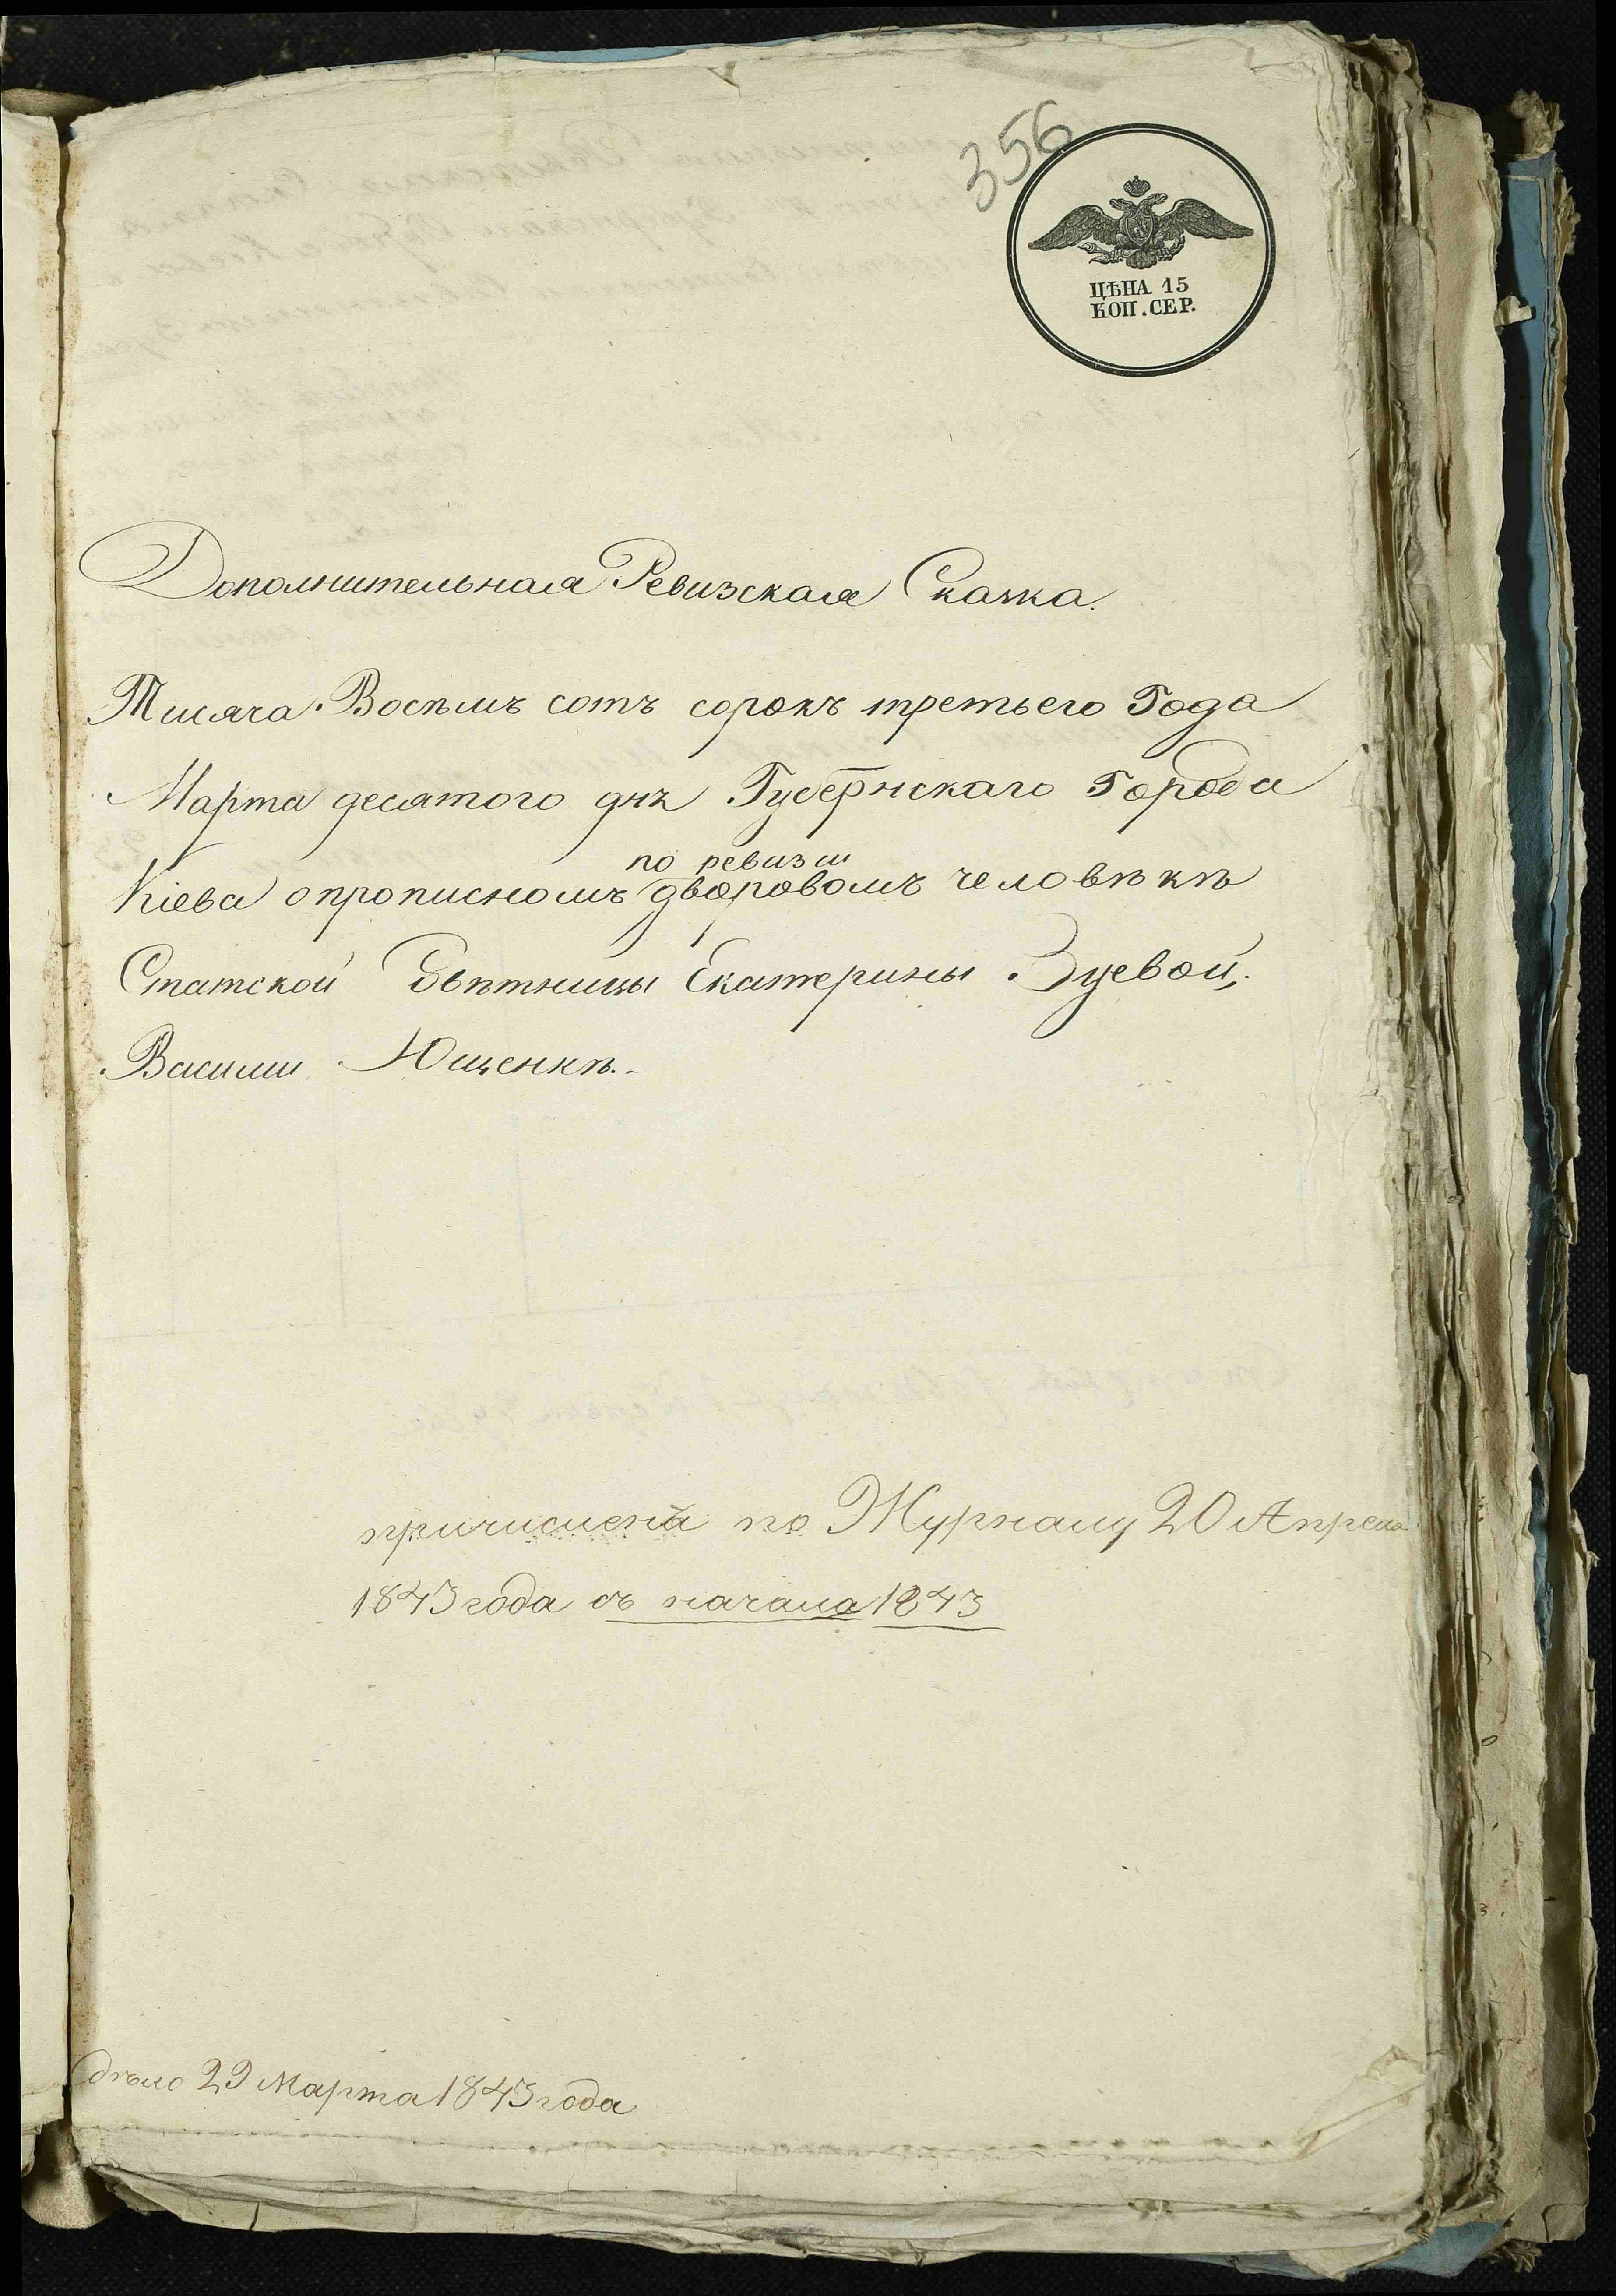 356
ЦѢНА 15
КОП. СЕР.
Дополнительная Ревизская Сказка.
Тисяча Восѣмъ сотъ сорокъ третьего Года
Марта десятого дня Губернскаго Города
по ревизии
Кіева о прописномъ дворовомъ человѣкѣ
Статской Совѣтницы Екатерины Зуевой,
Василии Ющенкѣ.
причислена по Журналу 20 Апреля
1843 года съ начала 1843
дѣло 29 Марта 1843 года